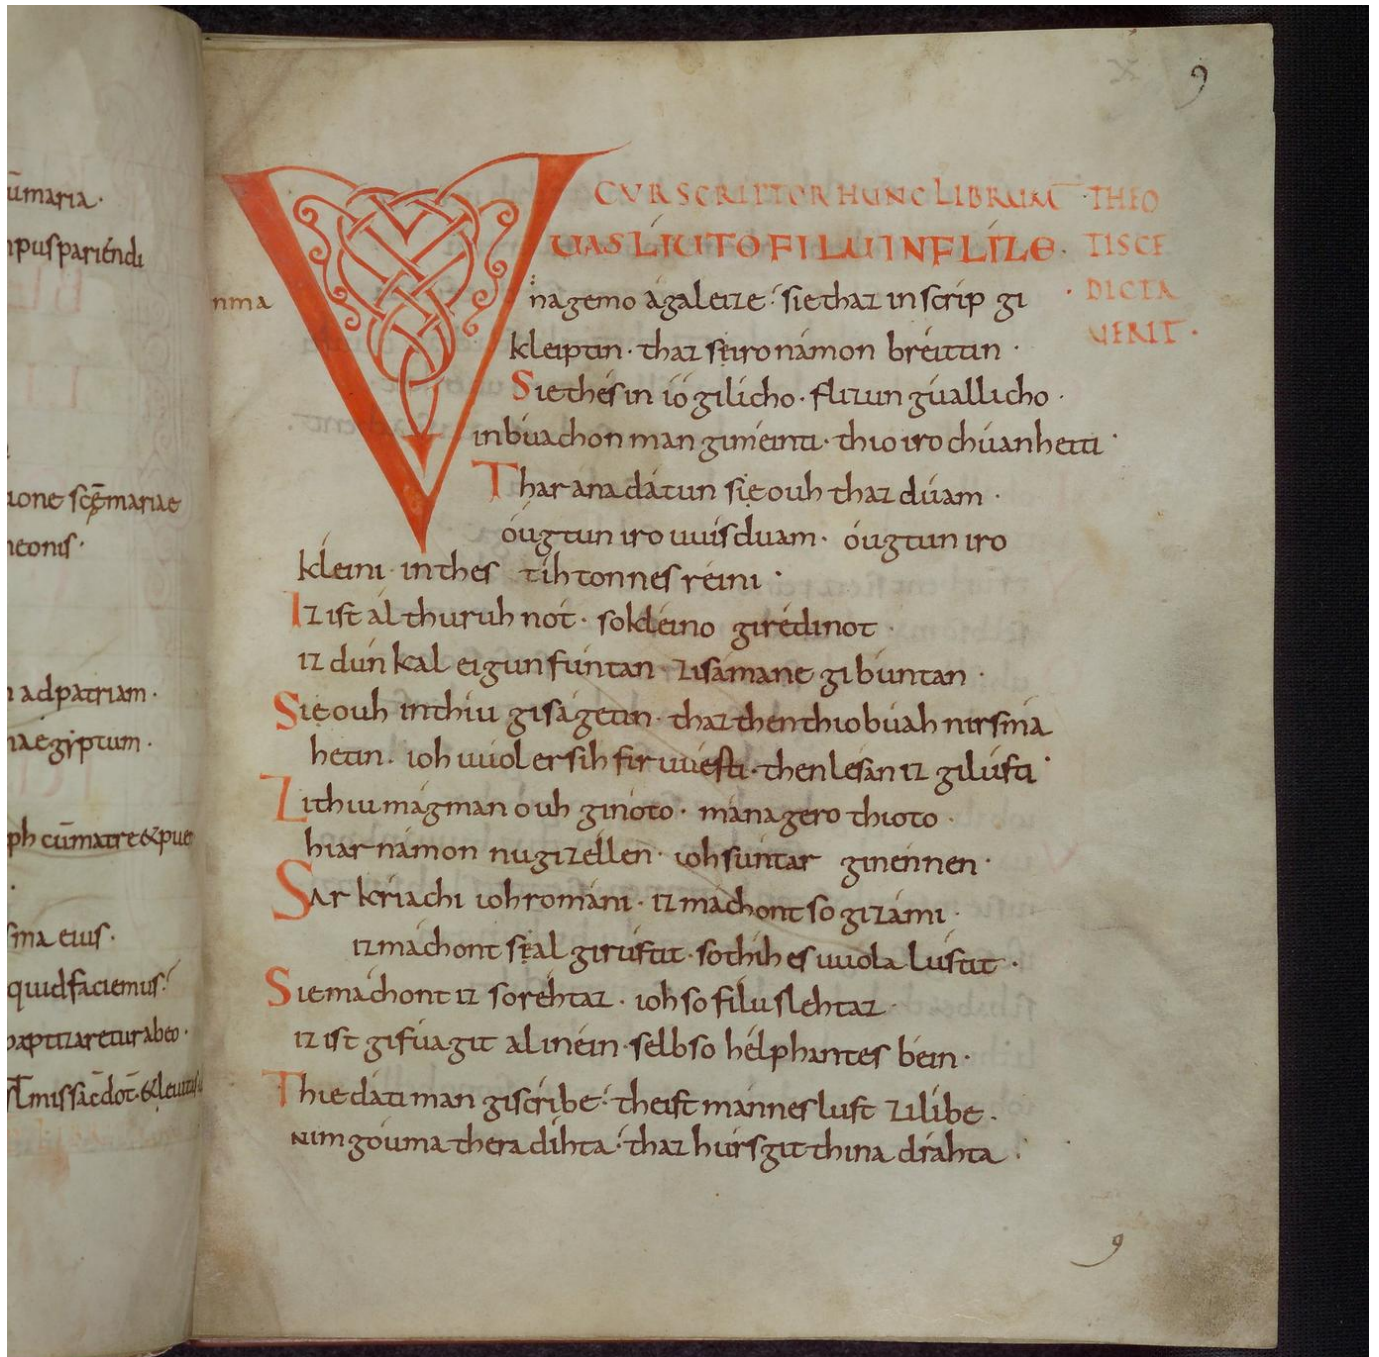 ūmaria·
npuspariéndi
ione scęmariae
neonis·
adpatriam·
naegẏptum·
ph cūmatre&pue
sma eius·
quid faciemus:
baptizaretur abeo·
9
CVR SCRIPTOR HUNC LIBRUM THEO
TISCE
DICTA
VERIT·
VUAS LIUTO FILU IN FLIZE·
nma
in agemo ágaleize· sie thaz in scrip gi
kleiptin· thaz se iro námon bréittin·
Sie thés in íó gilícho· flizun gúallicho·
in búachon man giméinti· thio iro chúanheiti·
Thar ana dátun sie ouh thaz dúam·
óugtun iro uuisduam· óugtun iro
kléini· in thes tihtonnes réini·
Iz ist ál thuruh nót· so kléino girédinot
iz dúnkal eigun fúntan· zisámane gibúntan·
Sie ouh in thiu giságetin· thaz then thio búah nirsmá
hetin· ioh uuol er sih firuuésti· then lésan iz gilústi·
Zi thiu mág man ouh ginóto· mánagero thioto·
hiar námon nu gizéllen· ioh súntar ginénnen·
Sar kríachi ioh románi· iz máchont so gizámi·
iz máchont sie al girústit· so thih es uuola lústit·
Sie máchont iz so réhtaz· ioh so filu sléhtaz·
iz ist gifúagit al in éin· selb so hélphantes béin·
Thie dáti man giscríbe· theist mannes lust zi líbe·
nim góuma thera díhta· thaz húrsgit thina dráhta·
9